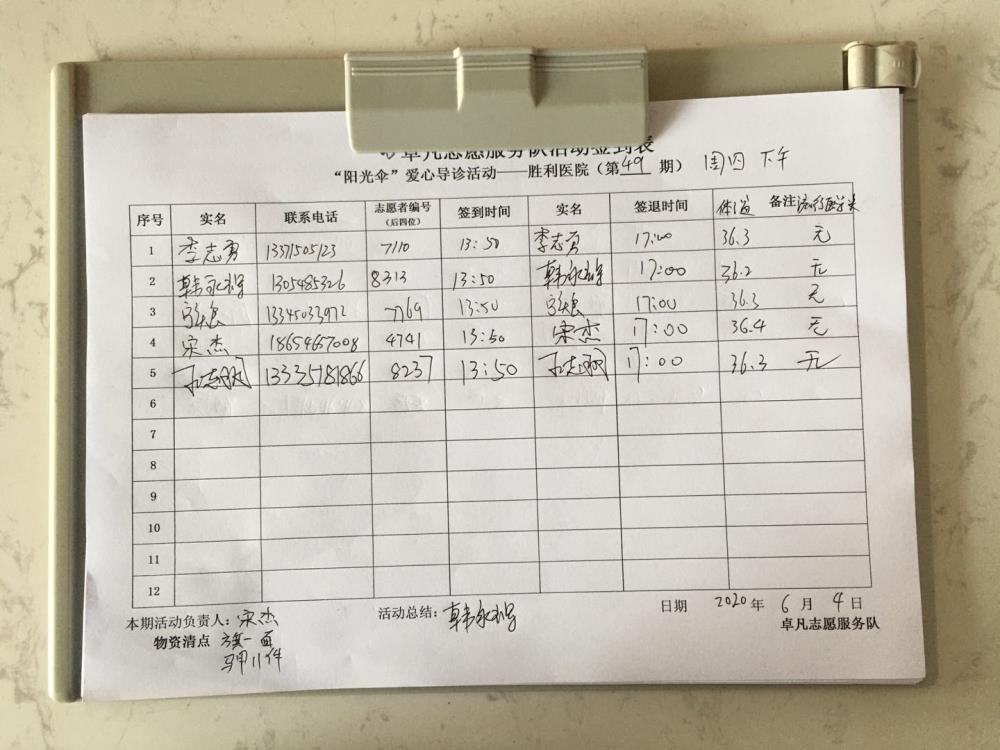 卓凡志愿服务队活动签到表
“阳光伞”爱心导诊活动——胜利医院（第49期） 周四 下午
序号 实名 联系电话 志愿者编号（后四位） 签到时间 实名 签退时间 体温 备注 流行病学史
1 李志勇 13371505123 7110 13:50 李志勇 17:00 36.3 无
2 韩永 1305485326 8313 13:50 韩永 17:00 36.2 无
3 13345033972 7769 13:50 17:00 36.3 无
4 宋杰 18654657008 4741 13:50 宋杰 17:00 36.4 无
5 13335181866 8237 13:50 17:00 36.3 无
6
7
8
9
10
11
12
本期活动负责人：宋杰 活动总结：韩永 日期 2020年 6月 4日
物资清点 旗一面 卓凡志愿服务队
马甲11件